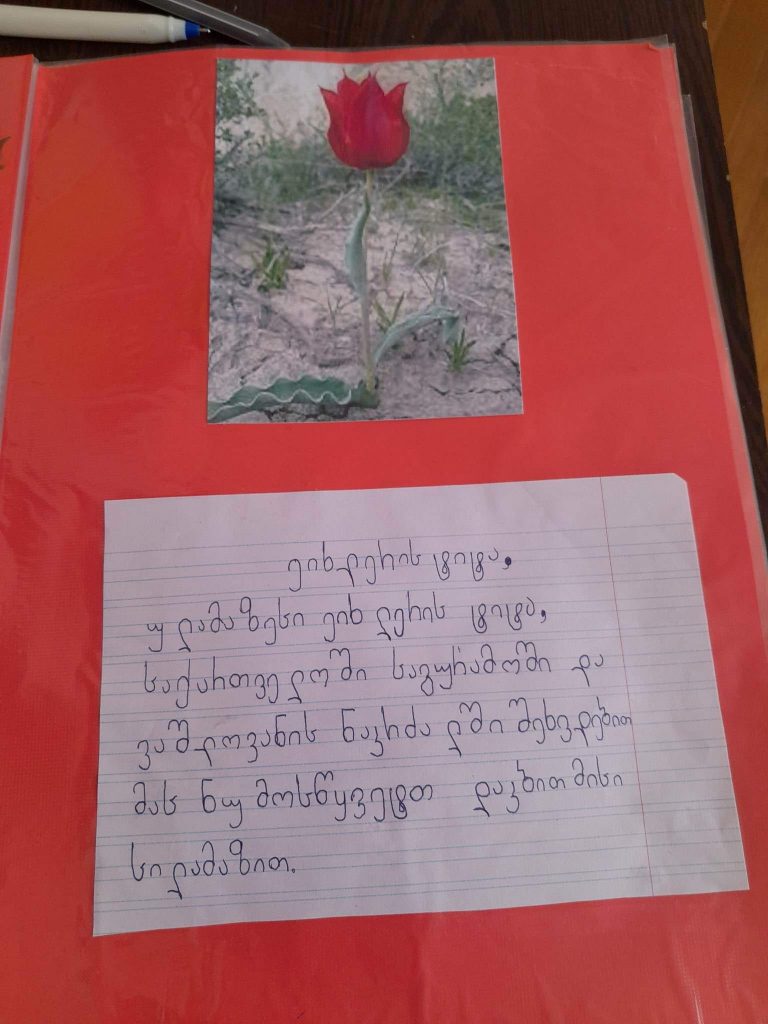 ეიხლერის ტიტა,
ულამაზესი ეიხლერის ტიტა,
საქართველოში საგურამოში და
ვაშლოვანის ნაკრძალში შეხვდებით
მას ნუ მოსწყვეტთ დაკბით მისი
სილამაზით.